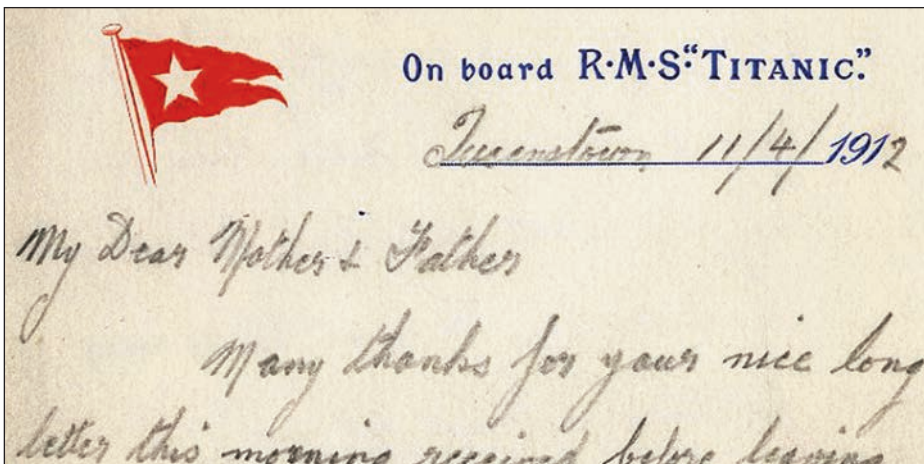 On board R·M·S·"TITANIC."
Queenstown 11/4/1912
My Dear Mother & Father
Many thanks for your nice long
letter this morning received before leaving